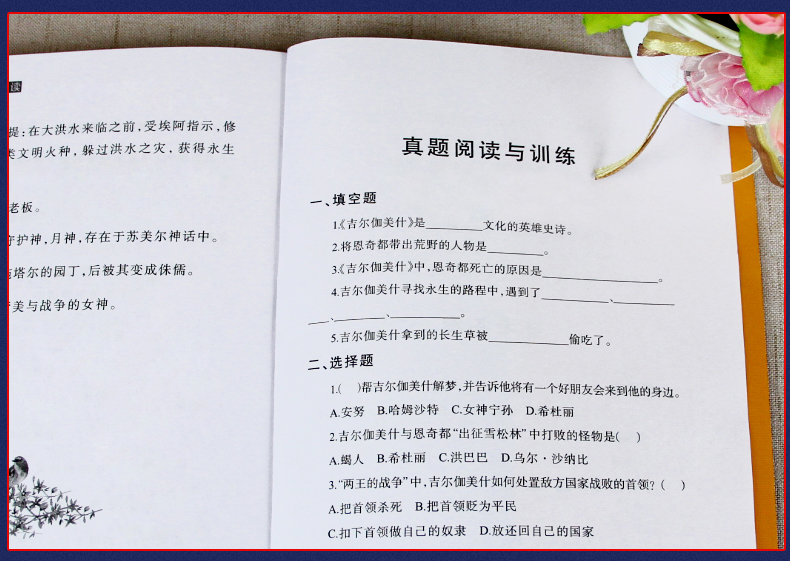 读
提:在大洪水来临之前,受埃阿指示,修
类文明火种,躲过洪水之灾,获得永生
老板。
守护神,月神,存在于苏美尔神话中。
塔尔的园丁,后被其变成侏儒。
美与战争的女神。
真题阅读与训练
一、填空题
1.《吉尔伽美什》是________文化的英雄史诗。
2.将恩奇都带出荒野的人物是________。
3.《吉尔伽美什》中,恩奇都死亡的原因是________________。
4.吉尔伽美什寻找永生的路程中,遇到了__________、________
___、________、__________。
5.吉尔伽美什拿到的长生草被___________偷吃了。
二、选择题
1.( )帮吉尔伽美什解梦,并告诉他将有一个好朋友会来到他的身边。
A.安努 B.哈姆沙特 C.女神宁孙 D.希杜丽
2.吉尔伽美什与恩奇都“出征雪松林”中打败的怪物是( )
A.蝎人 B.希杜丽 C.洪巴巴 D.乌尔·沙纳比
3.“两王的战争”中,吉尔伽美什如何处置敌方国家战败的首领?( )
A.把首领杀死 B.把首领贬为平民
C.扣下首领做自己的奴隶 D.放还回自己的国家